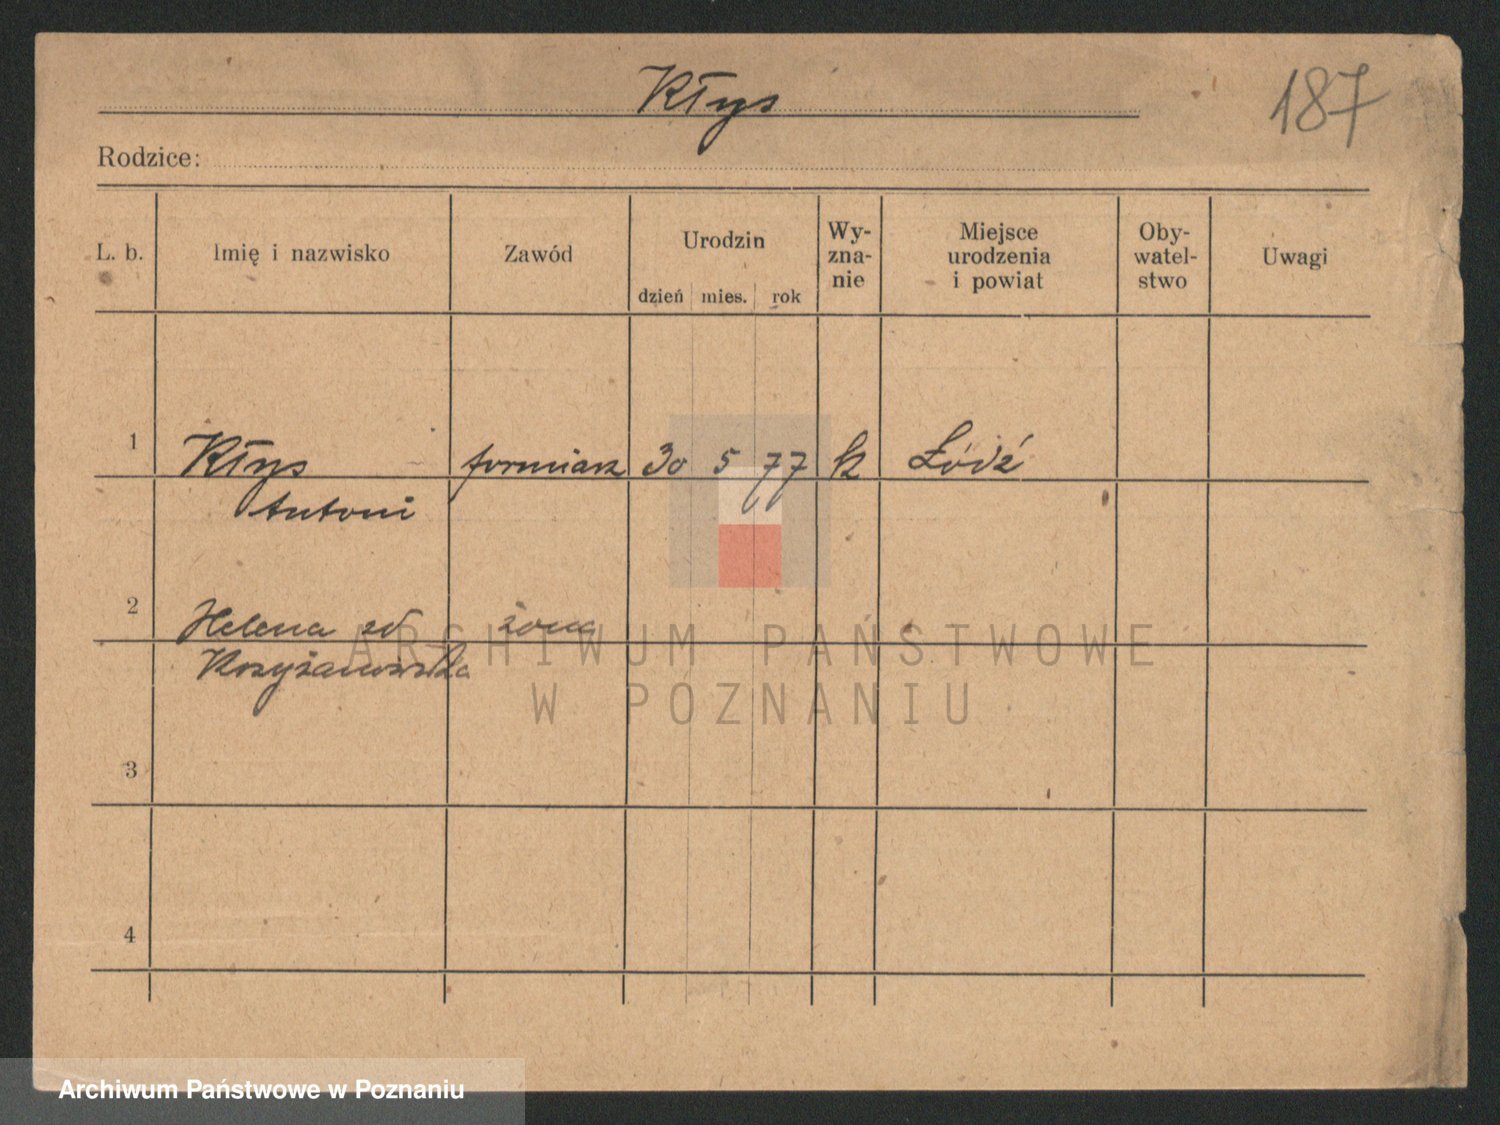 Kłys
187
Rodzice:
L. b.
Imię i nazwisko
Zawód
Urodzin
dzień mies. rok
Wy-
zna-
nie
Miejsce
urodzenia
i powiat
Oby-
watel-
stwo
Uwagi
1 Kłys formiarz 30 5 77 k Łódź
Antoni
2 Helena żona
3
4
ARCHIWUM PAŃSTWOWE
W POZNANIU
Archiwum Państwowe w Poznaniu